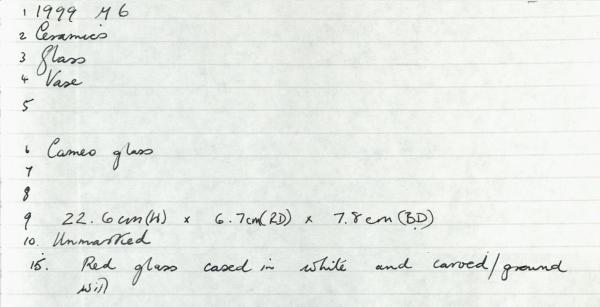 1 1999 M 6
2 Ceramics
3 Glass
4 Vase
5
6 Cameo glass
7
8
9 22.6cm(H) x 6.7cm(RD) x 7.8cm(BD)
10. Unmarked
15. Red glass cased in white and carved/ground
with